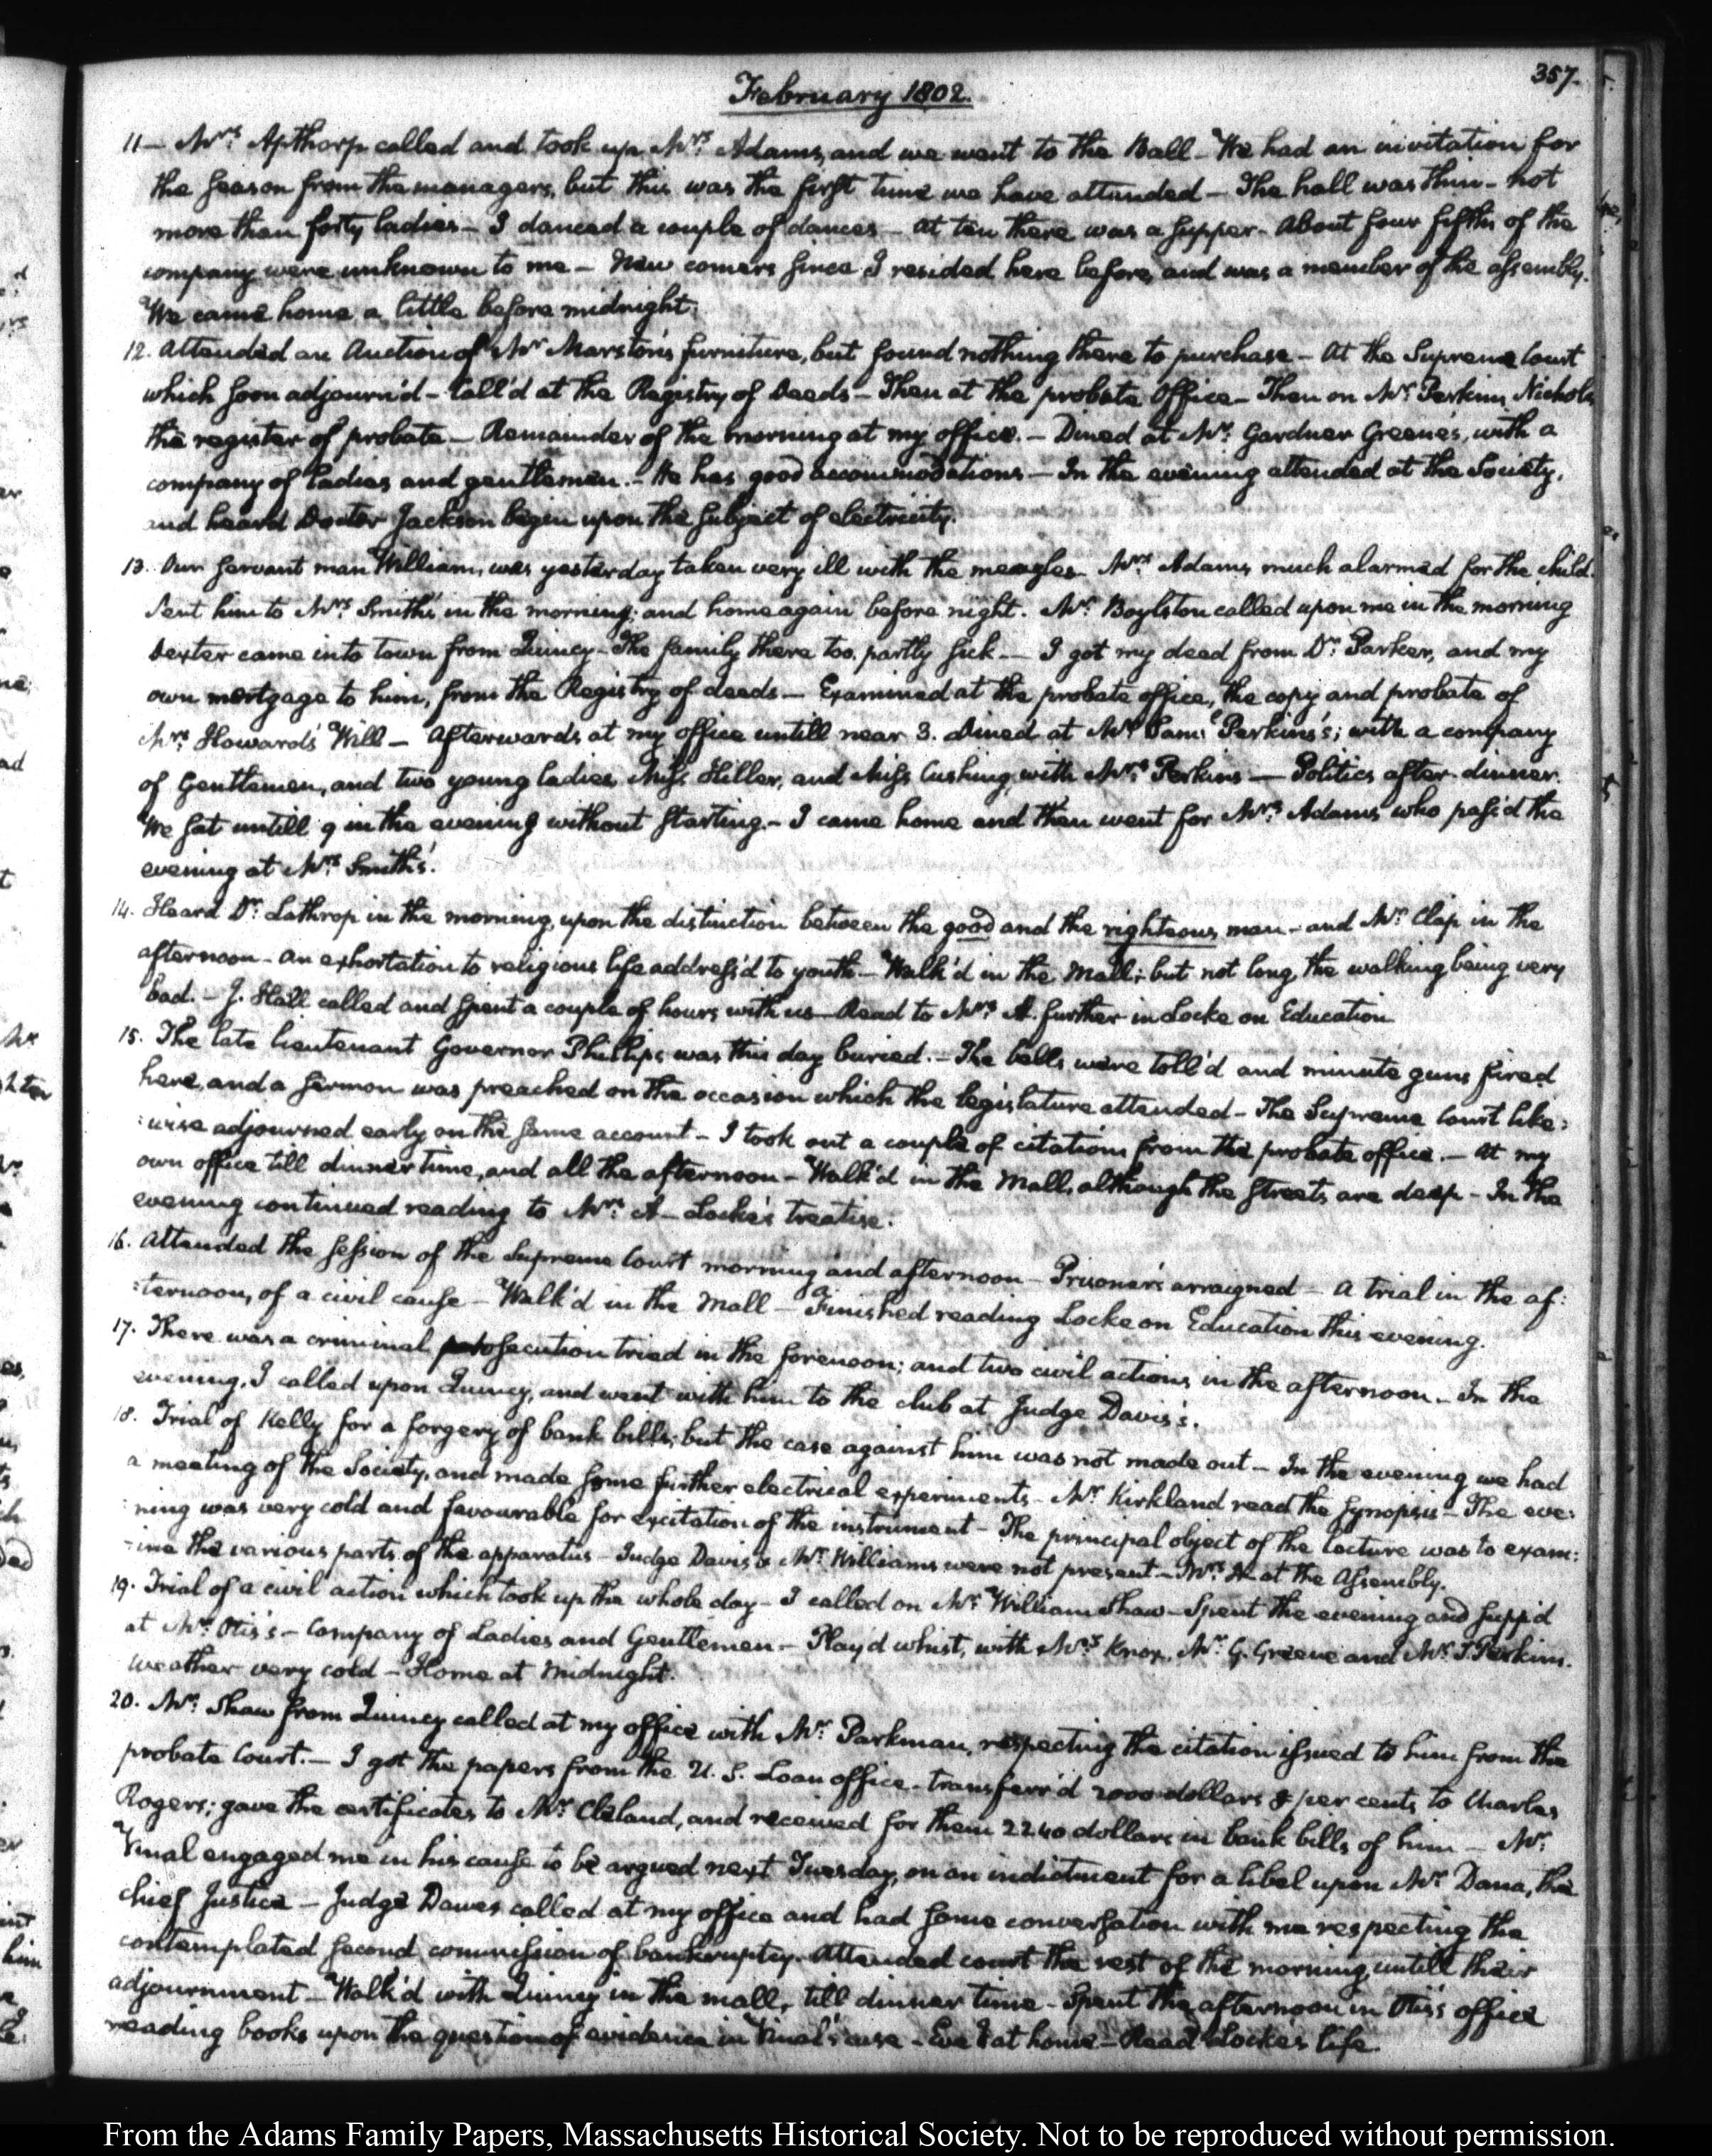 357.
February 1802.
11— Mrs. Apthorp called and took up Mrs. Adams, and we went to the Ball — We had an invitation for
the season from the managers, but this was the first time we have attended — The hall was thin — not
more than forty ladies — I danced a couple of dances — at ten there was a supper — About four fifths of the
company were unknown to me — New comers since I resided here before, and was a member of the assembly.
We came home a little before midnight.
12. Attended an Auction of Mr. Marston's furniture, but found nothing there to purchase — At the Supreme Court
which soon adjourn'd — Call'd at the Registry of Deeds — Then at the probate Office — Then on Mr. Perkins Nichols
the register of probate — Remainder of the morning at my office. — Dined at Mr. Gardner Greene's, with a
company of ladies and gentlemen. — He has good accommodations — In the evening attended at the Society,
and heard Doctor Jackson begin upon the subject of electricity.
13. Our servant man William, was yesterday taken very ill with the measles — Mrs. Adams much alarmed for the child.
Sent him to Mrs. Smith's in the morning; and home again before night. Mr. Boylston called upon me in the morning
Dexter came into town from Quincy — The family there too, partly sick — I got my deed from Dr. Parker, and my
own mortgage to him, from the Registry of deeds — Examined at the probate office, the copy and probate of
Mrs. Howard's Will — Afterwards at my office untill near 3. Dined at Mr. Saml. Perkins's; with a company
of Gentlemen, and two young ladies, Miss Hiller, and Miss Cushing, with Mrs. Perkins — Politics after dinner.
We sat untill 9 in the evening without starting. — I came home and then went for Mrs. Adams who pass'd the
evening at Mrs. Smith's.
14. Heard Dr. Lathrop in the morning, upon the distinction between the good and the righteous man — and Mr. Clap in the
afternoon — an exhortation to religious life address'd to youth — Walk'd in the Mall; but not long, the walking being very
bad. — J. Hall called and spent a couple of hours with us — Read to Mrs. A. further in Locke on Education
15. The late lieutenant Governor Phillips was this day buried. — The bells were toll'd and minute guns fired
here, and a sermon was preached on the occasion which the legislature attended — The Supreme Court like:
:wise adjourned early on the same account — I took out a couple of citations from the probate office. — At my
own office till dinner time, and all the afternoon — Walk'd in the Mall, although the streets are deep — In the
evening continued reading to Mrs. A — Locke's treatise.
16. Attended the session of the Supreme Court morning and afternoon — Prisoners arraigned — A trial in the af:
:ternoon, of a civil cause — Walk'd in the Mall — Finished reading Locke on Education this evening.
17. There was a criminal prosecution tried in the forenoon; and two civil actions in the afternoon — In the
evening, I called upon Quincy, and went with him to the club at Judge Davis's.
18. Trial of Kelly for a forgery of bank bills; but the case against him was not made out — In the evening we had
a meeting of the Society, and made some further electrical experiments — Mr. Kirkland read the synopsis — The eve:
:ning was very cold and favourable for excitation of the instrument — The principal object of the lecture was to exam:
:ine the various parts of the apparatus — Judge Davis & Mr. Williams were not present — Mrs. A. at the Assembly.
19. Trial of a civil action which took up the whole day — I called on Mr. William Shaw — Spent the evening and supp'd
at Mr. Otis's — Company of Ladies and Gentlemen — Play'd whist, with Mrs. Knox, Mr. G. Greene and Mr. T. Perkins.
weather very cold — Home at midnight.
20. Mr. Shaw from Quincy called at my office with Mr. Parkman, respecting the citation issued to him from the
probate Court. — I got the papers from the U. S. Loan office — transferr'd 2000 dollars 8 per cents to Charles
Rogers; gave the certificates to Mr. Cleland, and received for them 2240 dollars in bank bills of him — Mr.
Vinal engaged me in his cause to be argued next Tuesday, on an indictment for a libel upon Mr. Dana, the
chief Justice — Judge Dawes called at my office and had some conversation with me respecting the
contemplated second commission of bankruptcy. Attended court the rest of the morning, untill their
adjournment — Walk'd with Quincy in the mall, till dinner time — Spent the afternoon in Otis's office
reading books upon the question of evidence in Vinal's cause — Eveg. at home — Read Locke's life.
From the Adams Family Papers, Massachusetts Historical Society. Not to be reproduced without permission.